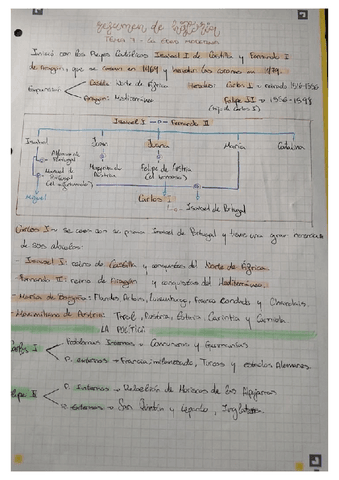 Resumen de historia
Tema 7 - La edad moderna
Inició con los Reyes Católicos Isabel I de Castilla y Fernando I
de Aragón, que se casan en 1469 y heredan las coronas en 1479.
Expansión Castilla Norte de África Heredero: Carlos I reinado 1516-1556
Aragón: Mediterráneo Felipe II 1556-1598
(hijo de Carlos I)
Isabel I Fernando II
Isabel Juan Juana María Catalina
Alfonso de Portugal Margarita de Austria Felipe de Austria
Manuel de Portugal (el hermoso)
(el afortunado)
Miguel Carlos I
Isabel de Portugal
Carlos I se casa con su prima Isabel de Portugal y tiene una gran herencia
de sus abuelos:
- Isabel I: reino de Castilla y conquistas del Norte de África
- Fernando II: reino de Aragón y conquistas del Mediterráneo.
- María de Borgoña: Flandes, Artois, Luxemburg, Franco Condado y Charolais.
- Maximiliano de Austria: Tirol, Austria, Estiria, Carintia y Carniola
LA POLÍTICA
Carlos I Problemas Internos Comuneros y Germanías
P. externos Francia, Turcos y estados Alemanes
Felipe II P. Internos Rebelión de Moriscos de las Alpujarras
P. externos San Quintín y Lepanto, Inglaterra.